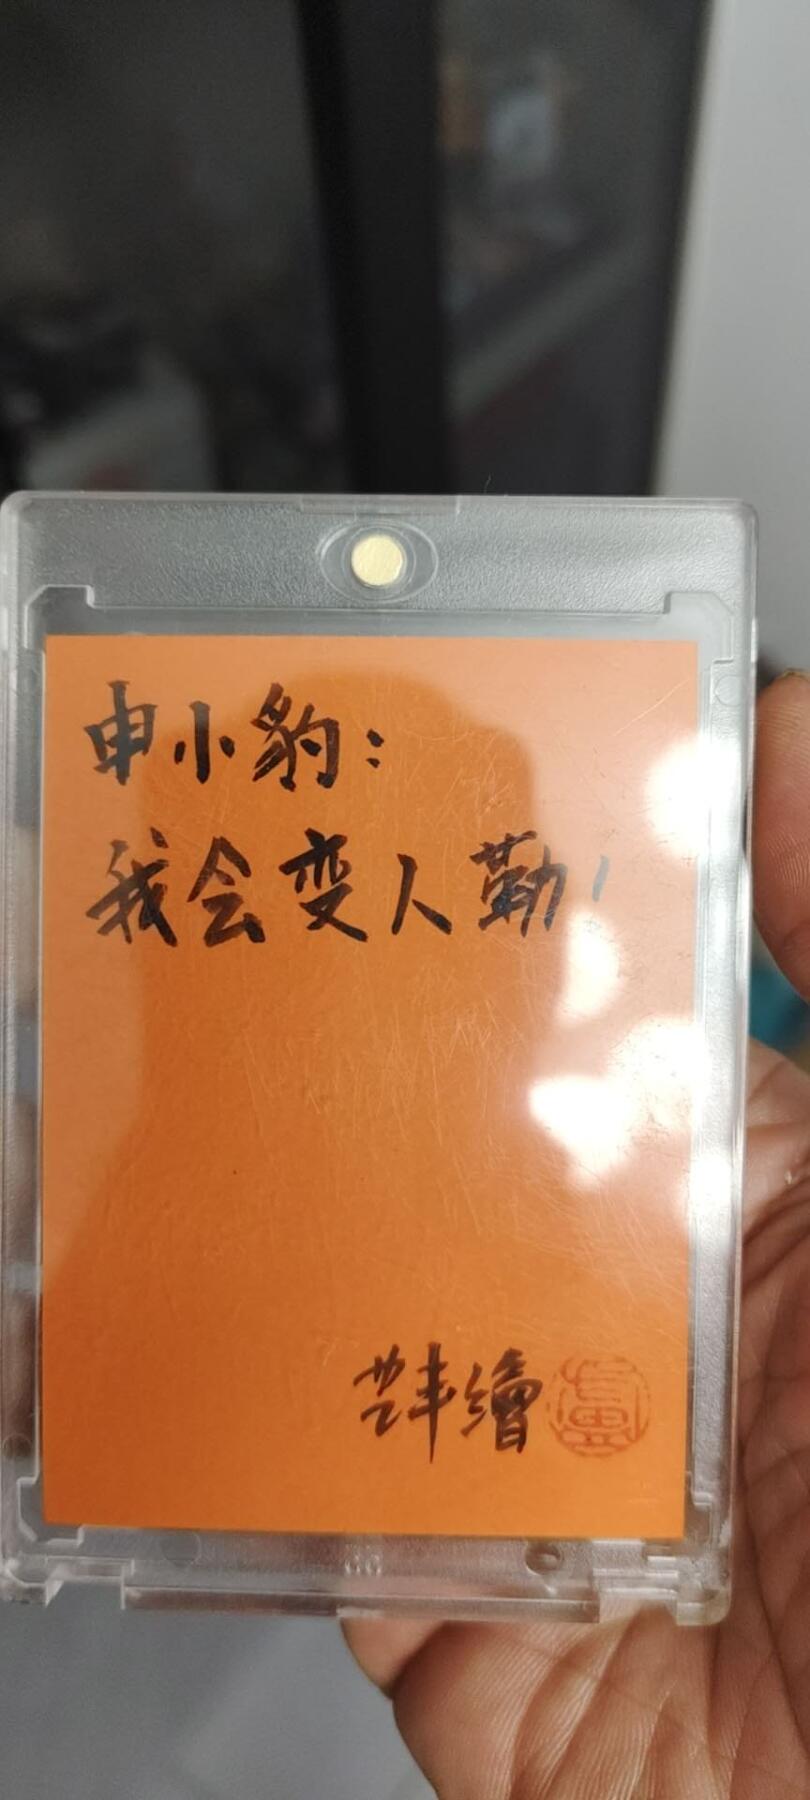 申小豹：
我会变人勤！